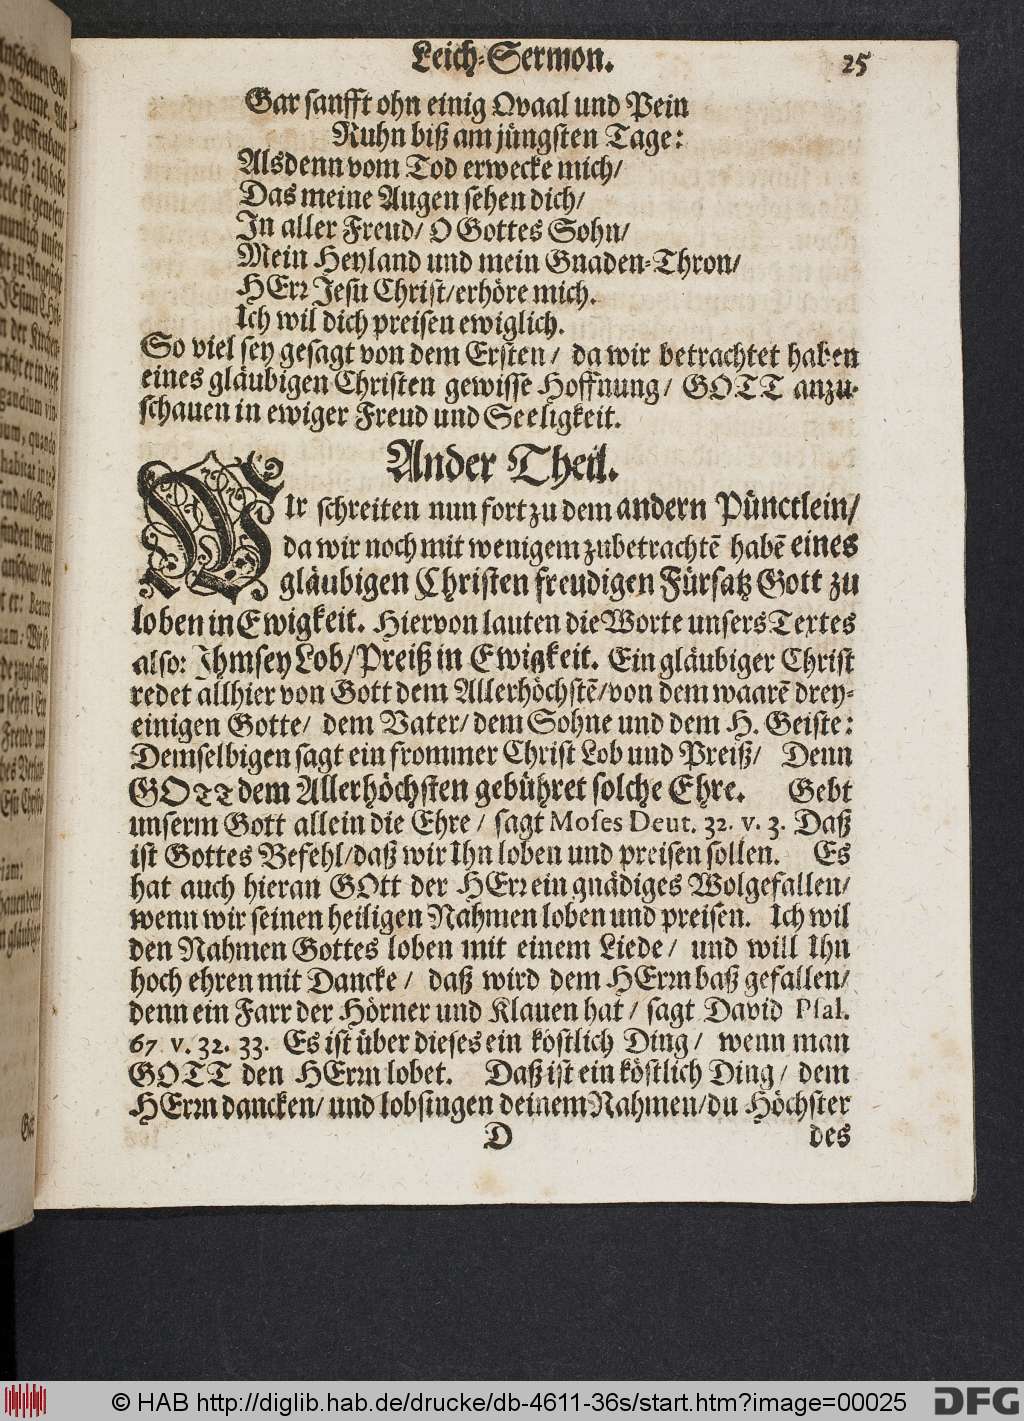 Leich-Sermon. 25
Gar sanfft ohn einig Qvaal und Pein
Ruhn biß am jüngsten Tage:
Alsdenn vom Tod erwecke mich/
Das meine Augen sehen dich/
In aller Freud/ O Gottes Sohn/
Mein Heyland und mein Gnaden-Thron/
HErr Jesu Christ/erhöre mich.
Ich wil dich preisen ewiglich.
So viel sey gesagt von dem Ersten/ da wir betrachtet haben
eines gläubigen Christen gewisse Hoffnung/ GOTT anzu-
schauen in ewiger Freud und Seeligkeit.
Ander Theil.
WIr schreiten nun fort zu dem andern Pünctlein/
da wir noch mit wenigem zubetrachtẽ habẽ eines
gläubigen Christen freudigen Fürsatz Gott zu
loben in Ewigkeit. Hiervon lauten die Worte unsers Textes
also: Ihm sey Lob/Preiß in Ewigkeit. Ein gläubiger Christ
redet allhier von Gott dem Allerhöchstẽ/von dem waarẽ drey-
einigen Gotte/ dem Vater/ dem Sohne und dem H. Geiste:
Demselbigen sagt ein frommer Christ Lob und Preiß/ Denn
GOTT dem Allerhöchsten gebühret solche Ehre. Gebt
unserm Gott allein die Ehre/ sagt Moses Deut. 32. v. 3. Daß
ist Gottes Befehl/daß wir Ihn loben und preisen sollen. Es
hat auch hieran GOtt der HErr ein gnädiges Wolgefallen/
wenn wir seinen heiligen Nahmen loben und preisen. Ich wil
den Nahmen Gottes loben mit einem Liede/ und will Ihn
hoch ehren mit Dancke/ daß wird dem HErrn baß gefallen/
denn ein Farr der Hörner und Klauen hat/ sagt David Psal.
67 v. 32. 33. Es ist über dieses ein köstlich Ding/ wenn man
GOTT den HErrn lobet. Daß ist ein köstlich Ding/ dem
HErrn dancken/ und lobsingen deinem Nahmen/du Höchster
D des
© HAB http://diglib.hab.de/drucke/db-4611-36s/start.htm?image=00025 DFG